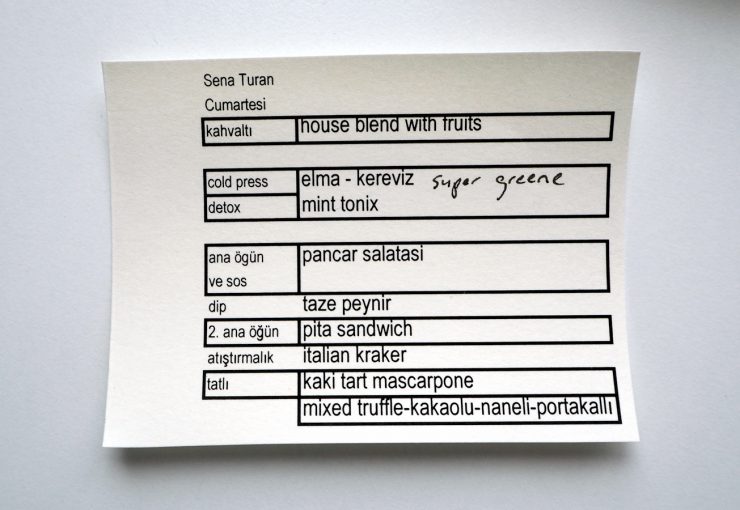 Sena Turan
Cumartesi
kahvaltı house blend with fruits
cold press elma - kereviz super greene
detox mint tonix
ana ögün pancar salatasi
ve sos
dip taze peynir
2. ana öğün pita sandwich
atıştırmalık italian kraker
tatlı kaki tart mascarpone
mixed truffle-kakaolu-naneli-portakallı